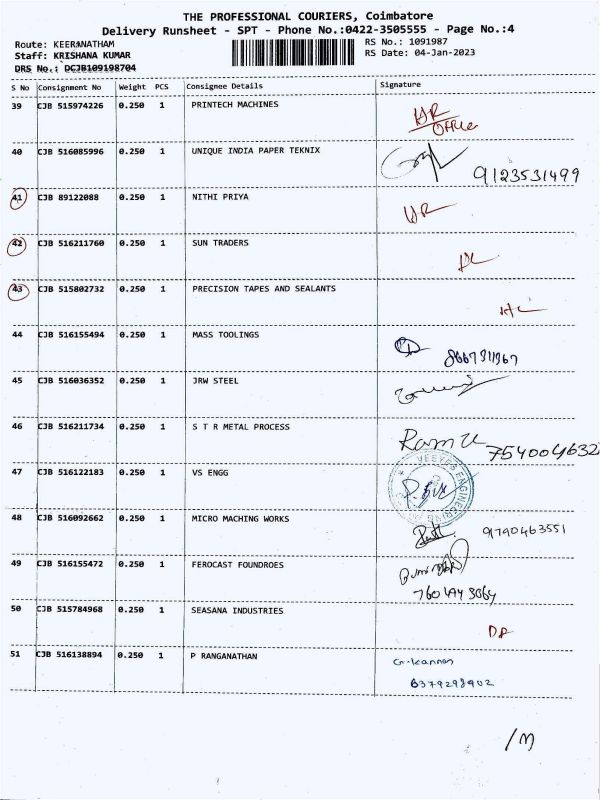 THE PROFESSIONAL COURIERS, Coimbatore
Delivery Runsheet - SPT - Phone No.:0422-3505555 - Page No.:4
Route: KEERANATHAM
RS No.: 1091987
Staff: KRISHANA KUMAR
RS Date: 04-Jan-2023
DRS No.: DCJB109198704
S No Consignment No Weight PCS Consignee Details Signature
39 CJB 515974226 0.250 1 PRINTECH MACHINES
Office
40 CJB 516085996 0.250 1 UNIQUE INDIA PAPER TEKNIX
9123531499
41 CJB 89122088 0.250 1 NITHI PRIYA
42 CJB 516211760 0.250 1 SUN TRADERS
43 CJB 515802732 0.250 1 PRECISION TAPES AND SEALANTS
44 CJB 516155494 0.250 1 MASS TOOLINGS
45 CJB 516036352 0.250 1 JRW STEEL
46 CJB 516211734 0.250 1 S T R METAL PROCESS
754004632
47 CJB 516122183 0.250 1 VS ENGG
48 CJB 516092662 0.250 1 MICRO MACHING WORKS
9790463551
49 CJB 516155472 0.250 1 FEROCAST FOUNDROES
50 CJB 515784968 0.250 1 SEASANA INDUSTRIES
51 CJB 516138894 0.250 1 P RANGANATHAN
G. Kannan
6379298902